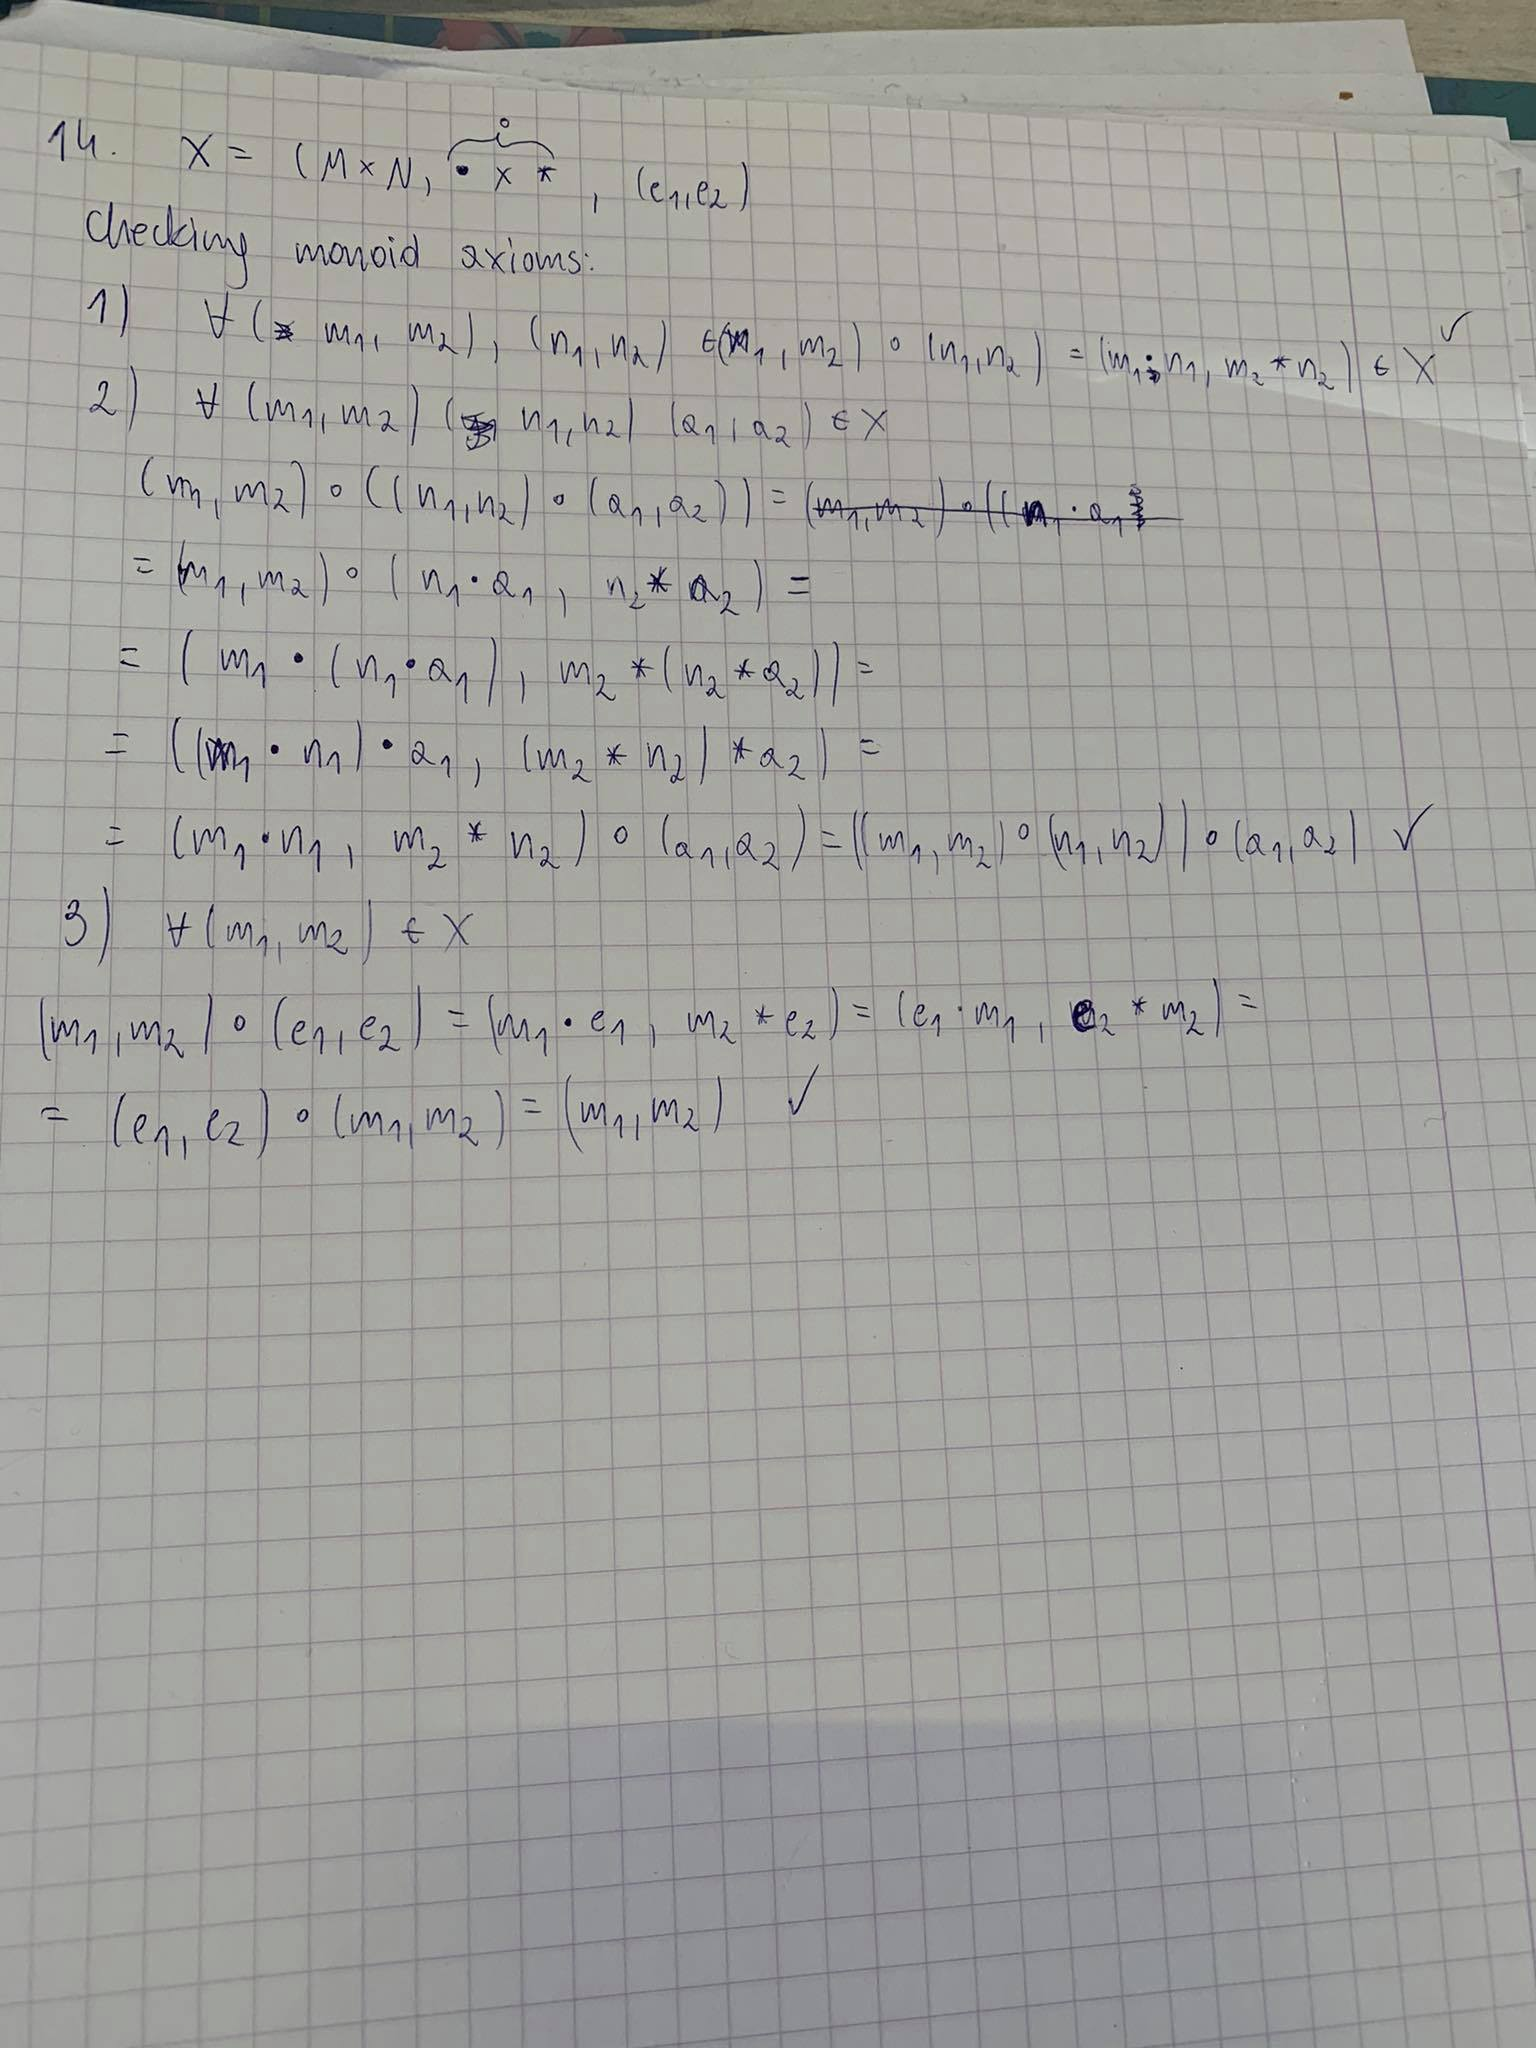 14. X = (M × N, • × *, (e1, e2)
∘
Checking monoid axioms:
1) ∀ (m1, m2), (n1, n2) ∈ (m1, m2) ∘ (n1, n2) = (m1 · n1, m2 * n2) ∈ X ✓
2) ∀ (m1, m2) (n1, n2) (a1, a2) ∈ X
(m1, m2) ∘ ((n1, n2) ∘ (a1, a2)) = (m1, m2) ∘ ((n1 · a1
= (m1, m2) ∘ (n1 · a1, n2 * a2) =
= (m1 · (n1 · a1), m2 * (n2 * a2)) =
= ((m1 · n1) · a1, (m2 * n2) * a2) =
= (m1 · n1, m2 * n2) ∘ (a1, a2) = ((m1, m2) ∘ (n1, n2)) ∘ (a1, a2) ✓
3) ∀ (m1, m2) ∈ X
(m1, m2) ∘ (e1, e2) = (m1 · e1, m2 * e2) = (e1 · m1, e2 * m2) =
= (e1, e2) ∘ (m1, m2) = (m1, m2) ✓